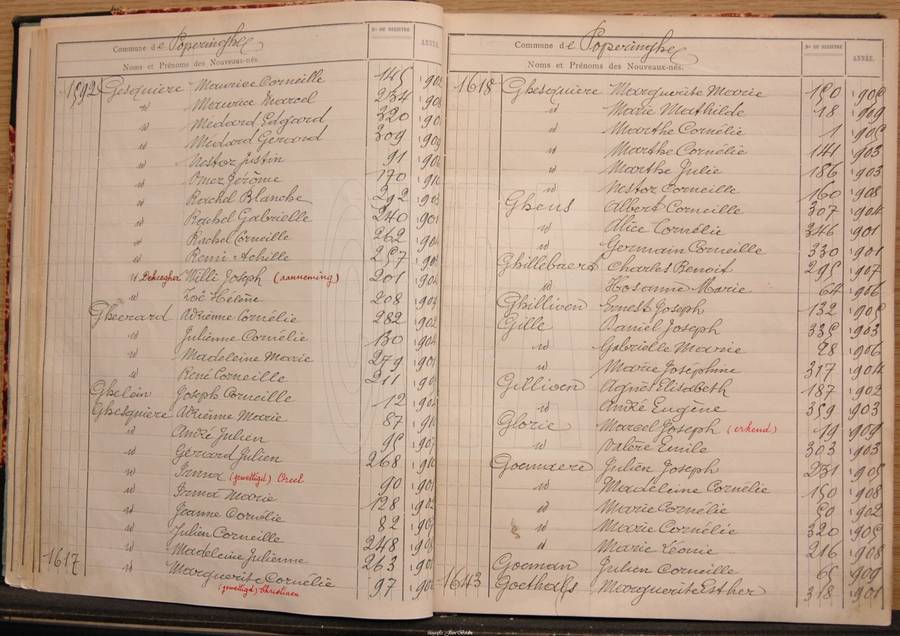 Commune de Poperinghe
Nº DU REGISTRE
ANNÉE.
Noms et Prénoms des Nouveaux-nés.
1592 Gesquiere Maurice Corneille 145
id Maurice Marcel 234
id Médard Edgard 320
id Médard Gérard 309
id Nestor Justin 91
id Omer Jérôme 170
id Rachel Blanche 292
id Rachel Gabrielle 240 901
id Rachel Corneille 262
id Remi Achille 257
id Dehaegher Willi Joseph (aanneming) 201
id Zoë Hélène 208
Gheerard Adrienne Cornélie 282 902
id Julienne Cornélie 130
id Madeleine Marie 279
id René Corneille 211
Ghelein Joseph Corneille 12
Ghesquière Adrienne Marie 87
id André Julien 95
id Gérard Julien 268
id Irma (gewettigd) 90
id Irma Marie 128
id Jeanne Cornélie 82
id Julien Corneille 248
id Madeleine Julienne 263
1617 id Marguerite Cornélie 97
(gewettigd) Christiaen
Commune de Poperinghe
Nº DU REGISTRE
ANNÉE.
Noms et Prénoms des Nouveaux-nés.
1618 Ghesquière Marguerite Marie 150
id Marie Mathilde 18 909
id Marthe Cornélie 1 905
id Marthe Cornélie 141 903
id Marthe Julie 186 903
id Nestor Corneille 160 908
Gheus Albert Corneille 307 904
id Alice Cornélie 346 901
id Germain Corneille 330 901
Ghillebaert Charles Benoit 295 907
id Hosanne Marie 64 906
Ghillioen Ernest Joseph 132 905
Gille Daniel Joseph 335 903
id Gabrielle Marie 28 906
id Marie Joséphine 317 904
Gillioen Agnès Elisabeth 187 902
id André Eugène 359 903
Glorie Marcel Joseph (erkend) 19 909
id Valère Emile 303 903
Goemaere Julien Joseph 231 905
id Madeleine Cornélie 150 908
id Marie Cornélie 50 902
id Marie Cornélie 320 905
id Marie Léonie 216 908
Goeman Julien Corneille 65 909
1643 Goethals Marguerite Esther 318 901